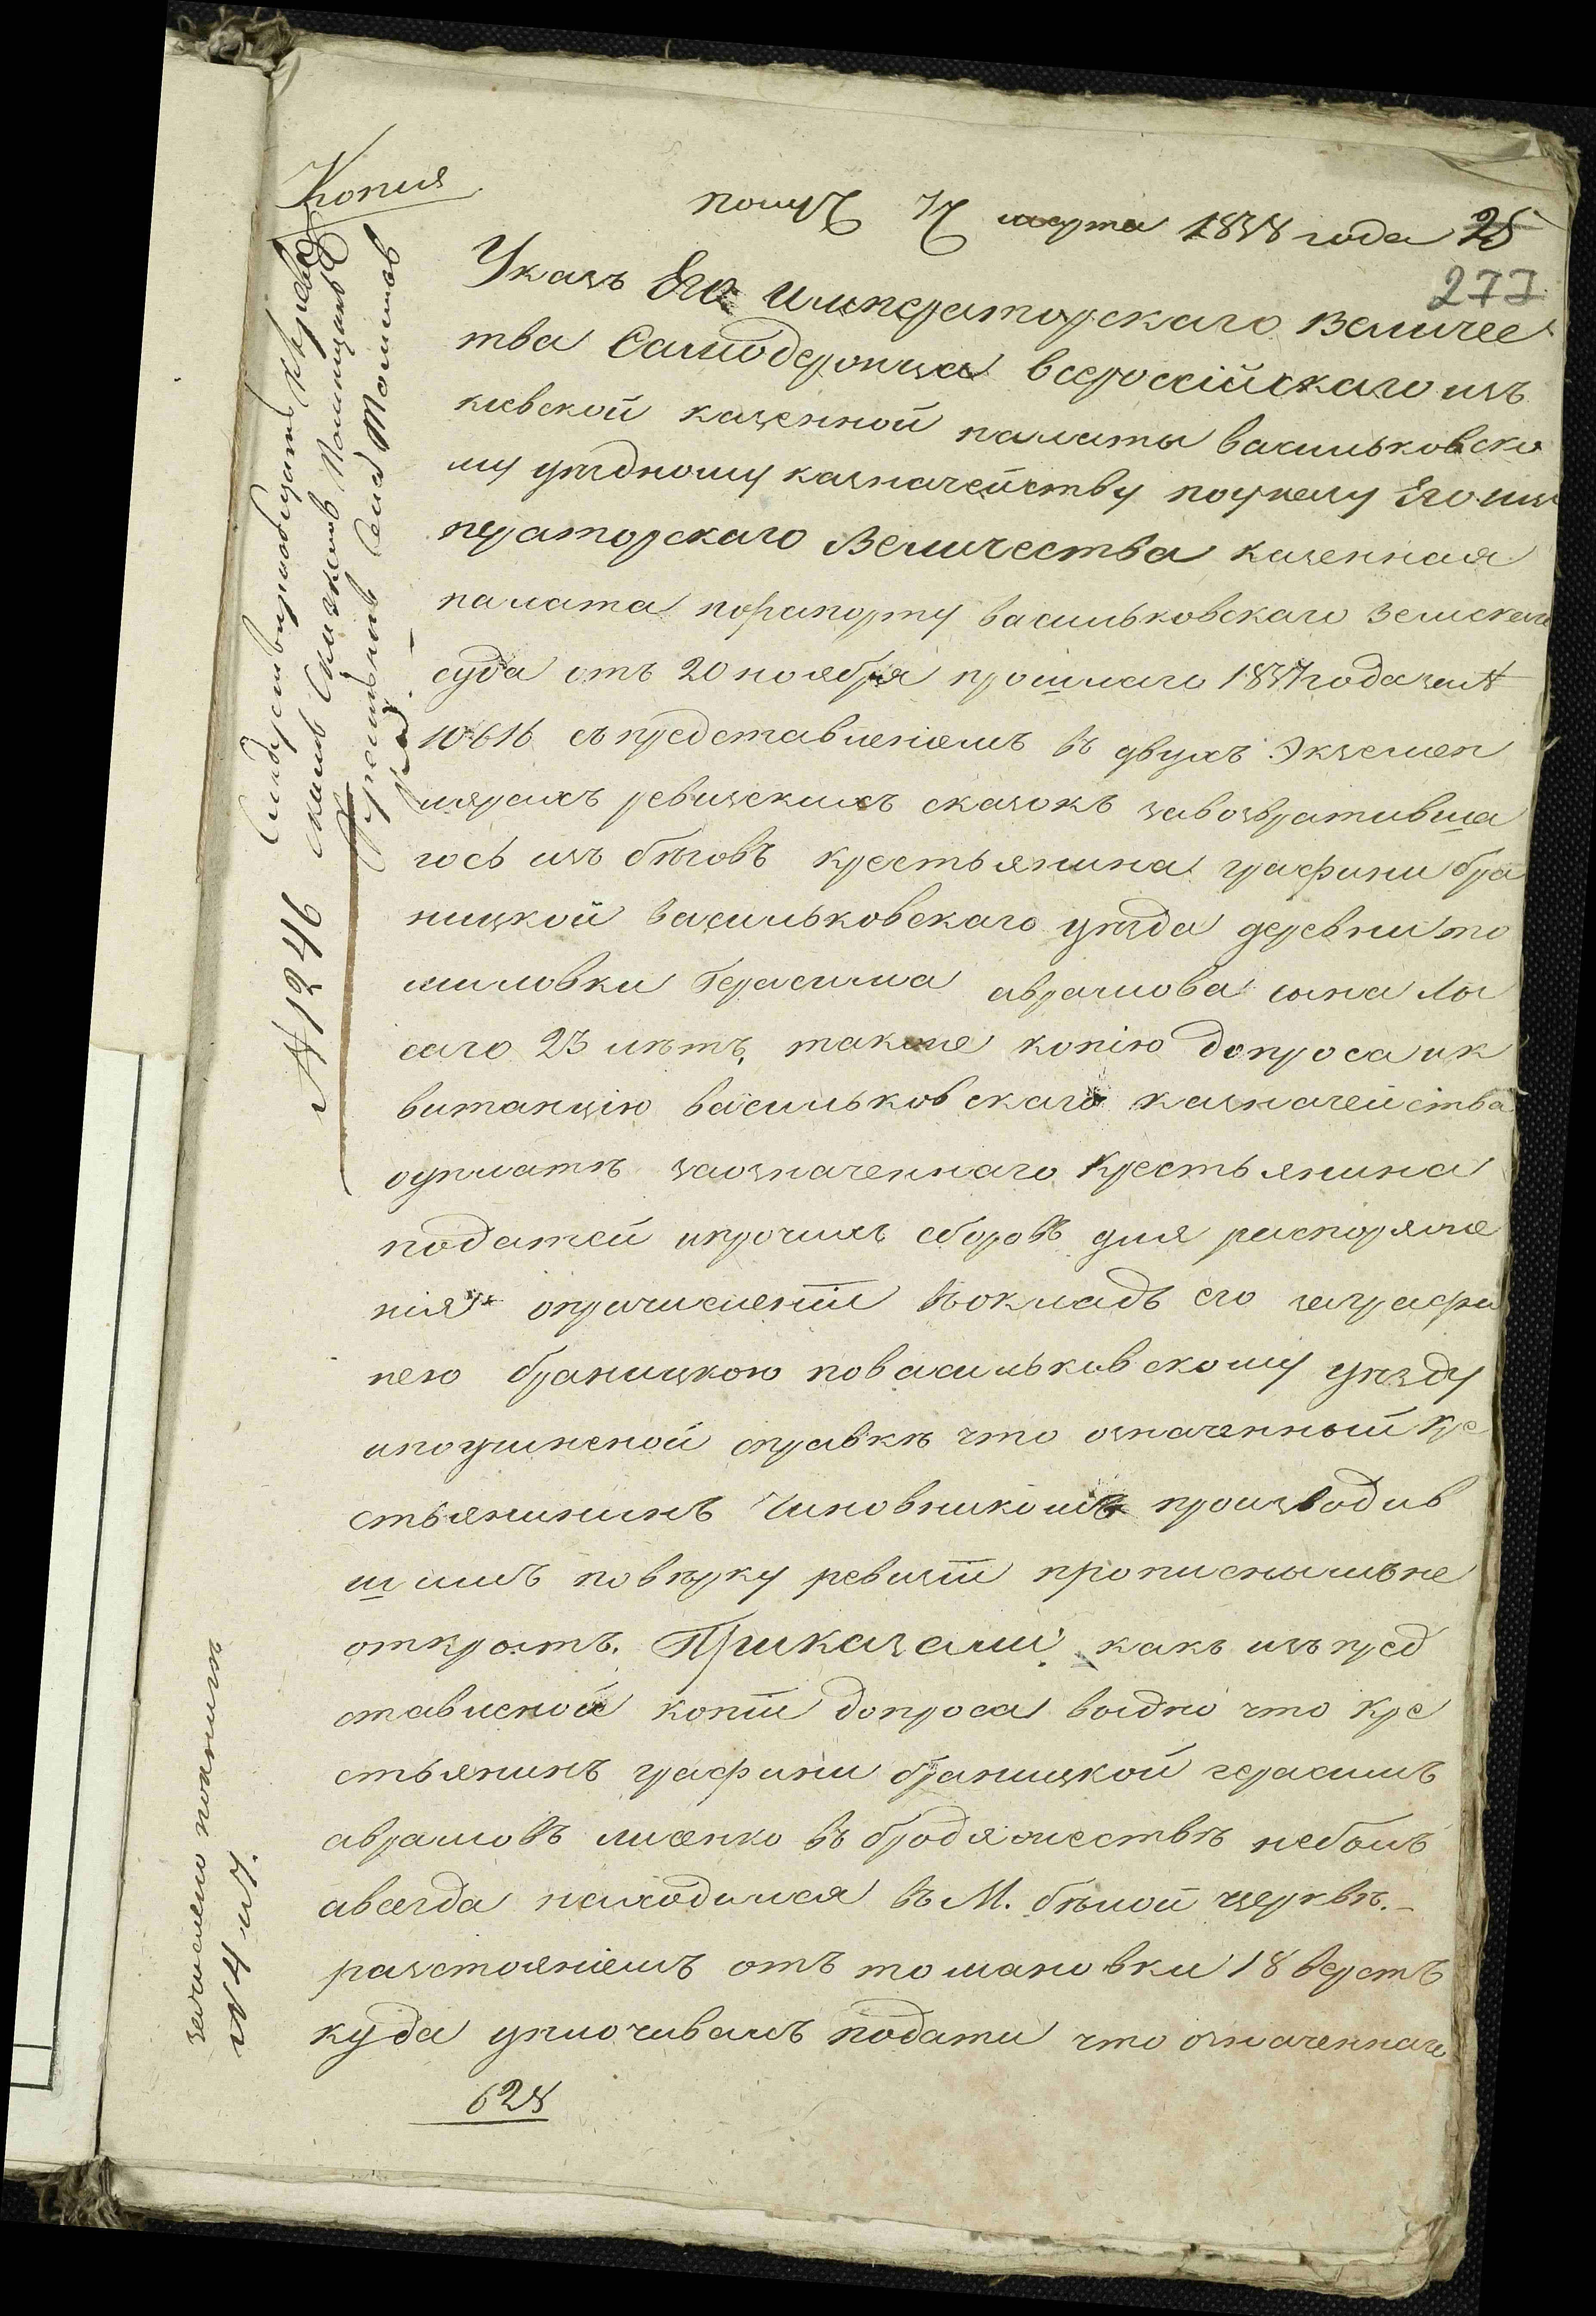 Копия
получ 17 марта 1838 года 25
277
Указъ Его Императорскаго Величес
тва Самодержца всероссійскаго изъ
киевской казенной палаты васильковско
му уѣздному казначейству поуказу Его им
ператорскаго Величества казенная
палата порапорту васильковскаго земскаго
суда отъ 20 ноября прошлаго 1837 года за №
10616 съ представлениемъ въ двухъ Экземп
лярахъ ревизскихъ сказокъ завозвративша
гось изъ бѣговъ крестьянина графини бра
ницкой васильковскаго уѣзда деревни то
миловки Герасима аврамова сына Лы
саго 23 лѣтъ, также копію допроса и к
витанцію васильковскаго казначейства
оуплатѣ заозначеннаго Крестьянина
податей ипрочихъ сборовъ для распоряже
нія опричисленіи въокладъ его заграфи
нею браницкою повасильковскому уѣзду
ипоучиненой справкѣ что означенный Кре
стьянинъ Чиновникомъ производив
шимъ повѣрку ревизіи прописнымъ не
открытъ. Приказали, какъ изъ пред
ставленой копіи допроса выдно что Кре
стьянинъ графини браницкой герасимъ
аврамовъ лисенко въ бродяжествѣ небылъ
авсегда находился въ М. бѣлой церквѣ.
разстояніемъ отъ томиловки 18 верстъ
куда уплочивалъ подати что означеннаго
628
№ 1246
зачислено поаншлѣ
№ 4 и 7.